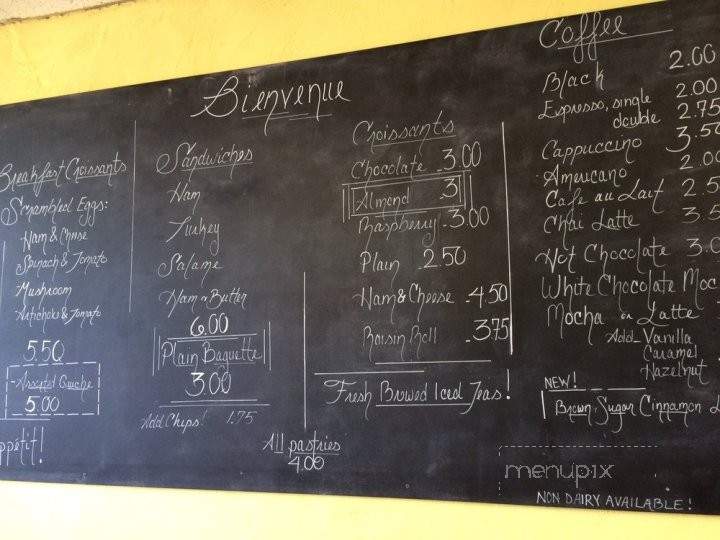 Bienvenue
Breakfast Croissants
Scrambled Eggs:
Ham & Cheese
Spinach & Tomato
Mushroom
Artichoke & Tomato
5.50
Assorted Quiche
5.00
ppétit!
Sandwiches
Ham
Turkey
Salame
Ham n Butter
6.00
Plain Baguette
3.00
Add Chips! 1.75
All pastries
4.00
Croissants
Chocolate 3.00
Almond 3
Raspberry 3.00
Plain 2.50
Ham & Cheese 4.50
Raisin Roll 3.75
Fresh Brewed Iced Teas!
Coffee
Black 2.00
Espresso, single 2.00
double 2.75
Cappuccino 3.50
Americano 2.00
Cafe au Lait 2.5
Chai Latte 3.5
Hot Chocolate 3.0
White Chocolate Moc
Mocha or Latte
Add Vanilla
Caramel
Hazelnut
NEW!
Brown Sugar Cinnamon L
menupix
NON DAIRY AVAILABLE!